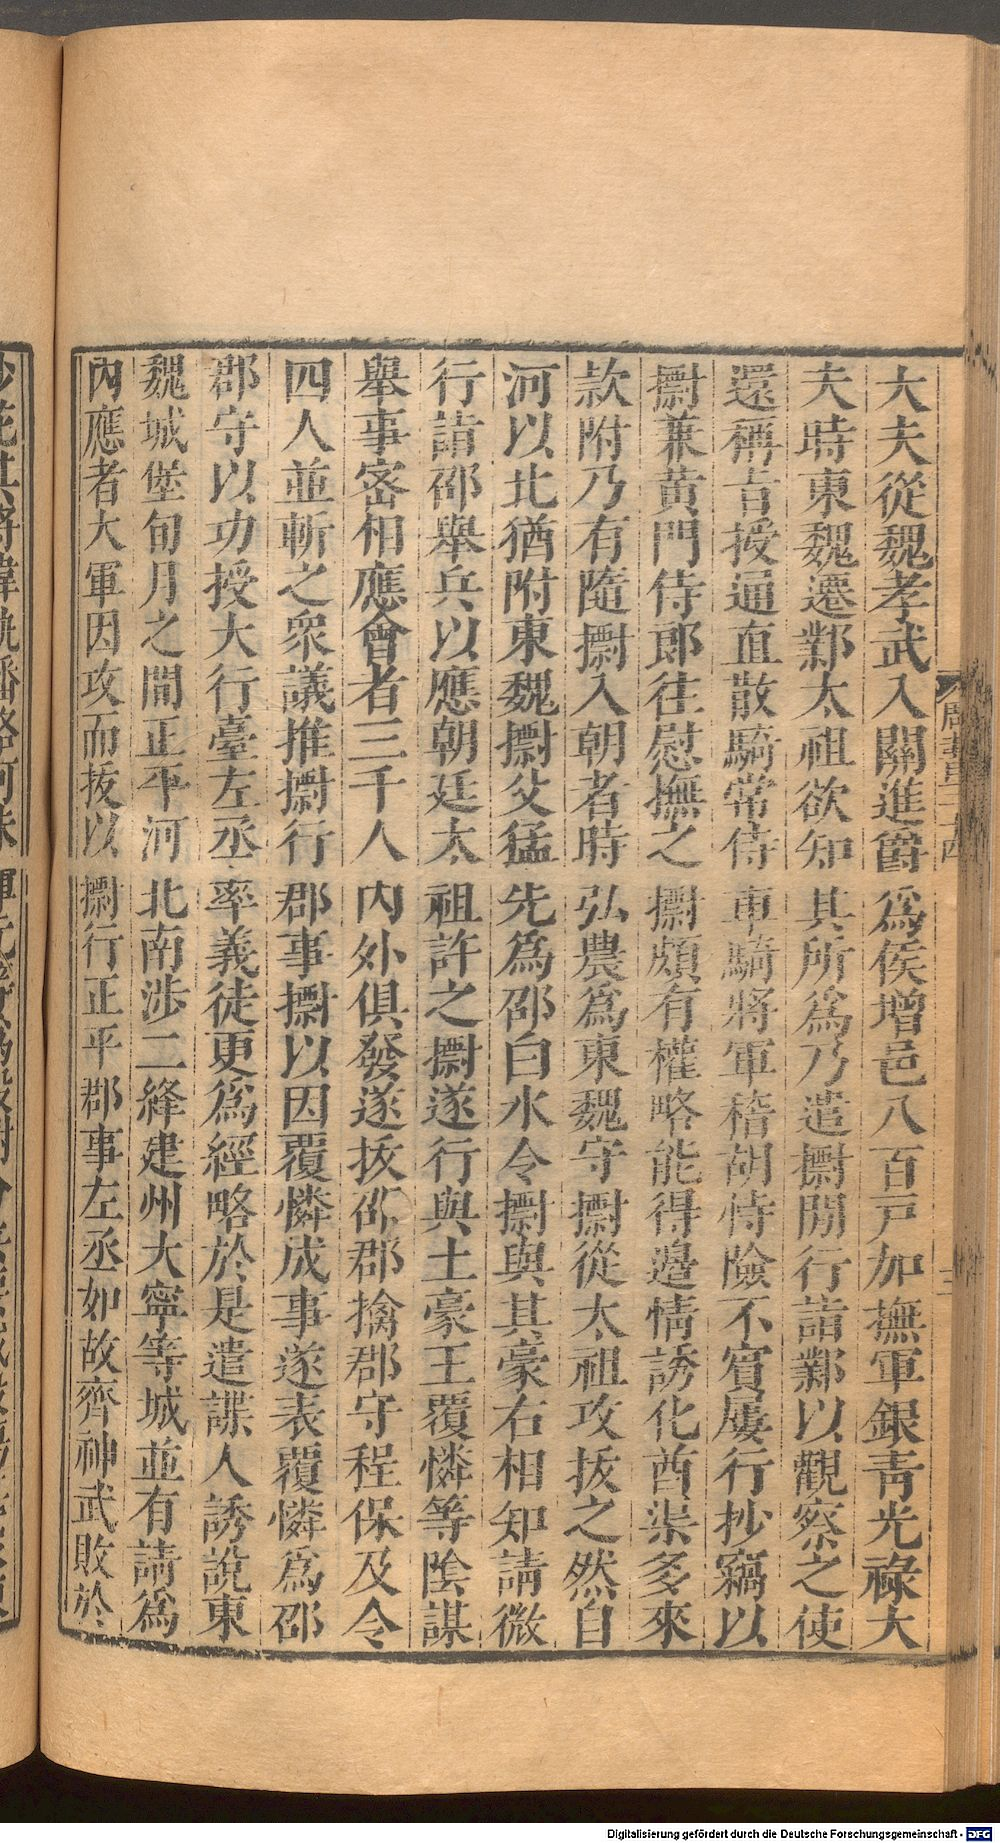 大夫從魏孝武入關進爵爲侯增邑八百戸加撫軍銀青光祿大
夫時東魏遷鄴太祖欲知其所爲乃遣㯹間行詣鄴以觀察之使
還稱旨授通直散騎常侍車騎將軍稽胡恃險不賓屢行抄竊以
㯹兼黃門侍郎往慰撫之㯹頗有權略能得邊情誘化酋渠多來
款附乃有隨㯹入朝者時弘農爲東魏守㯹從太祖攻拔之然自
河以北猶附東魏㯹父猛先爲邵白水令㯹與其豪右相知請微
行詣邵舉兵以應朝廷太祖許之㯹遂行與土豪王覆憐等陰謀
舉事密相應會者三千人內外俱發遂拔邵郡擒郡守程保及令
四人並斬之衆議推㯹行郡事㯹以因覆憐成事遂表覆憐爲邵
郡守以功授大行臺左丞率義徒更爲經略於是遣諜人誘說東
魏城堡旬月之間正平河北南涉二絳建州大寧等城並有請爲
內應者大軍因攻而拔以㯹行正平郡事左丞如故齊神武敗於
Digitalisierung gefördert durch die Deutsche Forschungsgemeinschaft - DFG